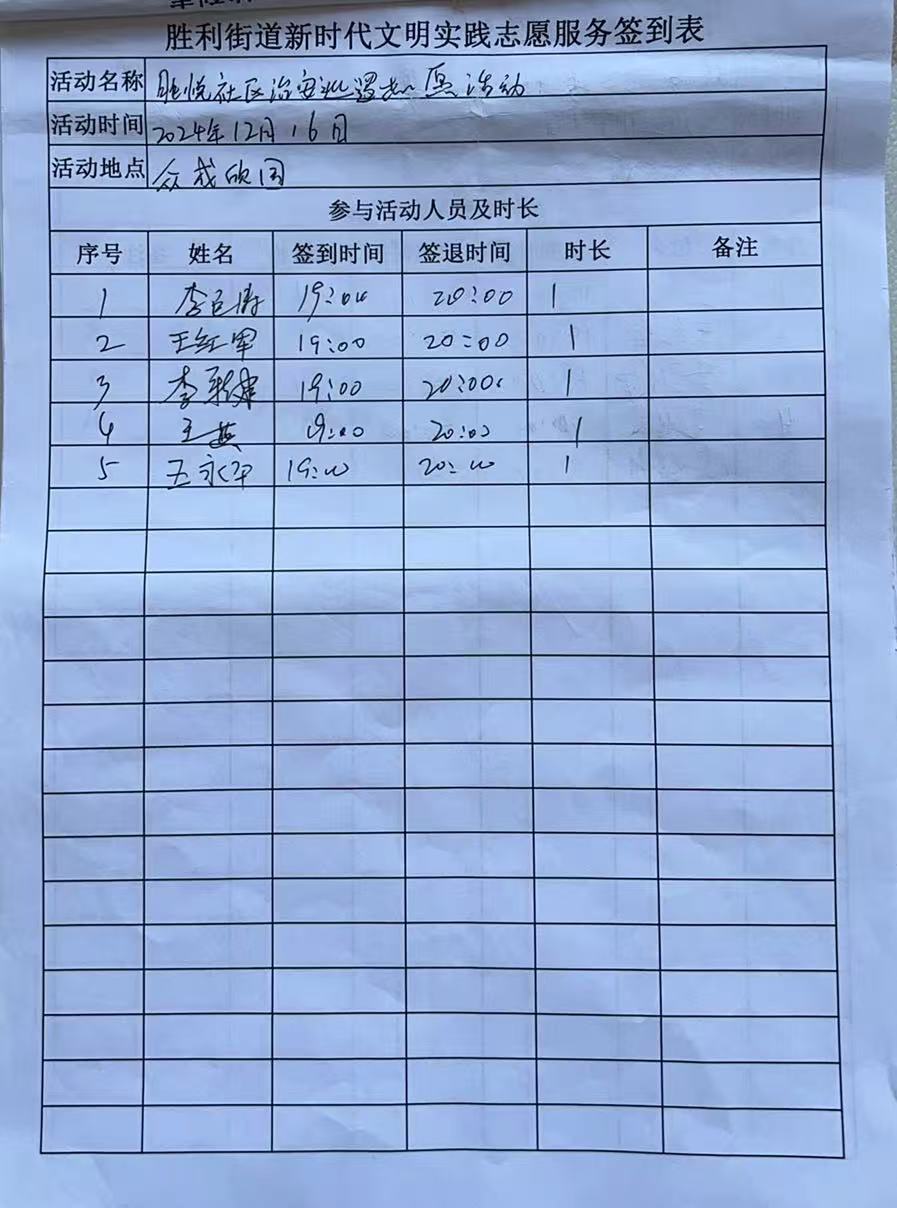 胜利街道新时代文明实践志愿服务签到表
活动名称 胜悦社区治安巡逻志愿活动
活动时间 2024年12月16日
活动地点 众成欣园
参与活动人员及时长
序号 姓名 签到时间 签退时间 时长 备注
1 19:00 20:00 1
2 王红军 19:00 20:00 1
3 李新建 19:00 20:00 1
4 王英 19:00 20:00 1
5 王永军 19:00 20:00 1